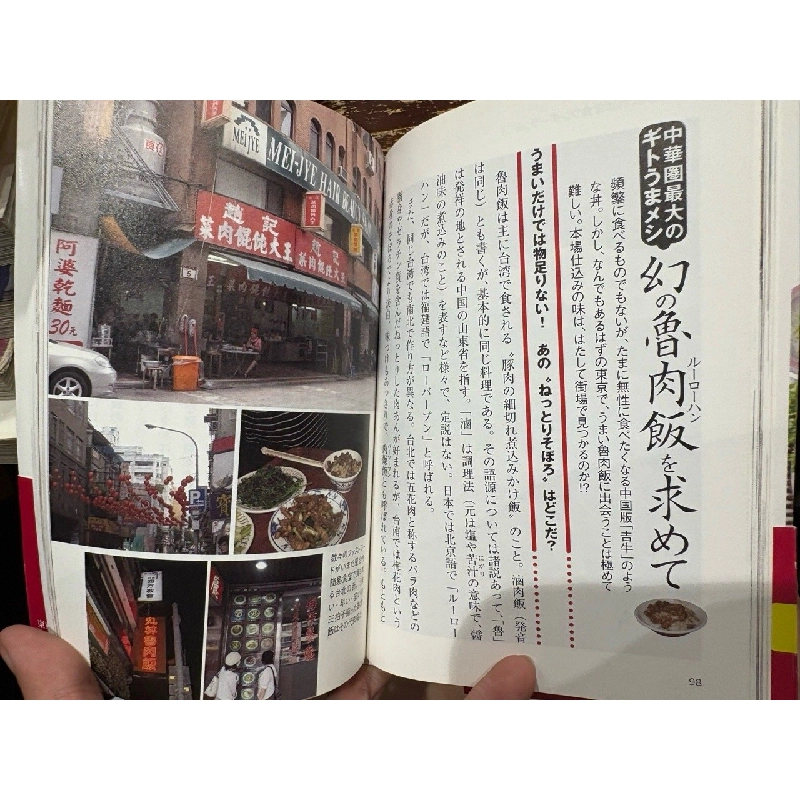 中華圏最大の
ギトうまメシ
幻の魯肉飯を求めて
ルーローハン
頻繁に食べるものでもないが、たまに無性に食べたくなる中国版「吉牛」のよう
な丼。しかし、なんでもあるはずの東京で、うまい魯肉飯に出会うことは極めて
難しい。本場仕込みの味は、はたして街場で見つかるのか!?
うまいだけでは物足りない! あの〝ねっとりそぼろ〟はどこだ?
魯肉飯は主に台湾で食される〝豚肉の細切れ煮込みかけ飯〟のこと。滷肉飯(発音
は同じ)とも書くが、基本的に同じ料理である。その語源については諸説あって、「魯」
は発祥の地とされる中国の山東省を指す。「滷」は調理法(元は塩や苦汁の意味で、醤
にがり
油味の煮込みのこと)を表すなど様々で、定説はない。日本では北京語で「ルーロー
ハン」だが、台湾では福建語で「ローバープン」と呼ばれる。
また、同じ台湾でも南北で作り方が異なる。台北では五花肉と称するバラ肉などの
98
MEIJYE
MEI-JYE HAIR
趙記
菜肉餛飩大王
菜肉餛飩大王
5
阿婆乾麵
30元
P
丸林魯肉飯